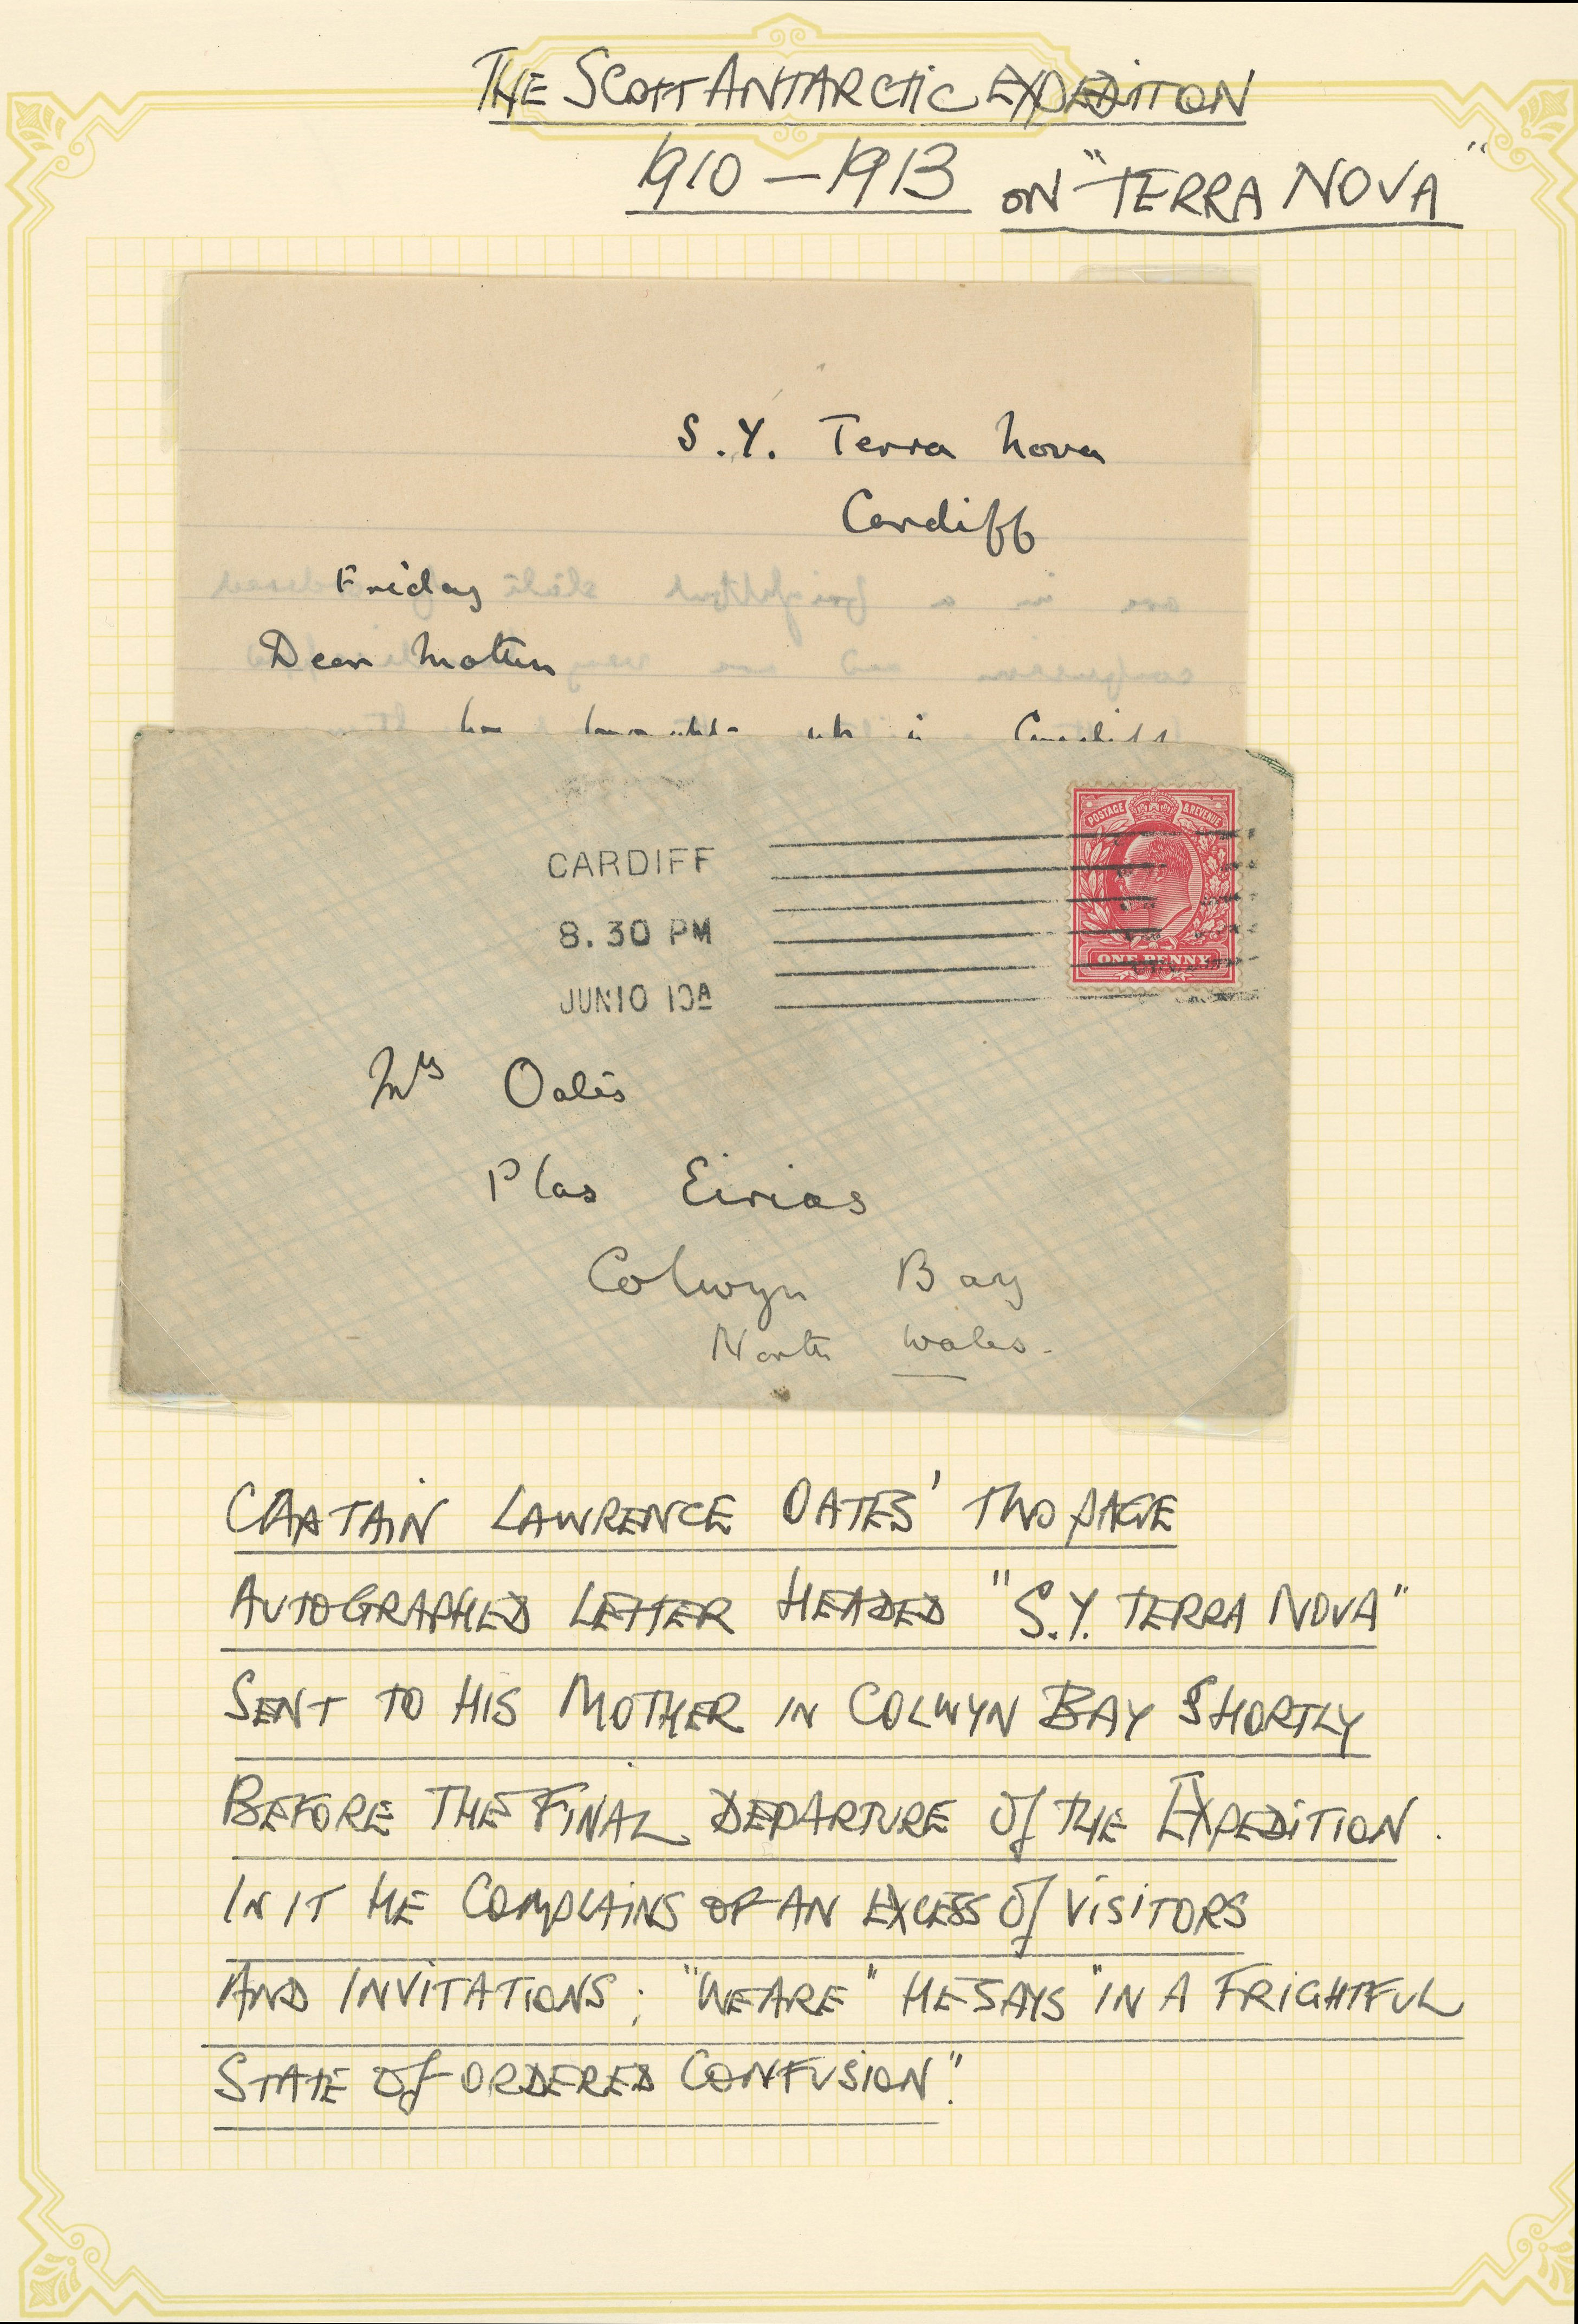 THE SCOTT ANTARCTIC EXPEDITION
1910 – 1913 ON "TERRA NOVA"
S.Y. Terra Nova
Cardiff
Friday
Dear Mother
POSTAGE & REVENUE
ONE PENNY
CARDIFF
8.30 PM
JUN 10 10A
Mrs Oates
Plas Eirias
Colwyn Bay
North Wales.
CAPTAIN LAWRENCE OATES' TWO PAGE
AUTOGRAPHED LETTER HEADED "S.Y. TERRA NOVA"
SENT TO HIS MOTHER IN COLWYN BAY SHORTLY
BEFORE THE FINAL DEPARTURE Of THE EXPEDITION.
IN IT HE COMPLAINS OF AN EXCESS Of VISITORS
AND INVITATIONS; "WE ARE" HE SAYS "IN A FRIGHTFUL
STATE Of ORDERED CONFUSION".